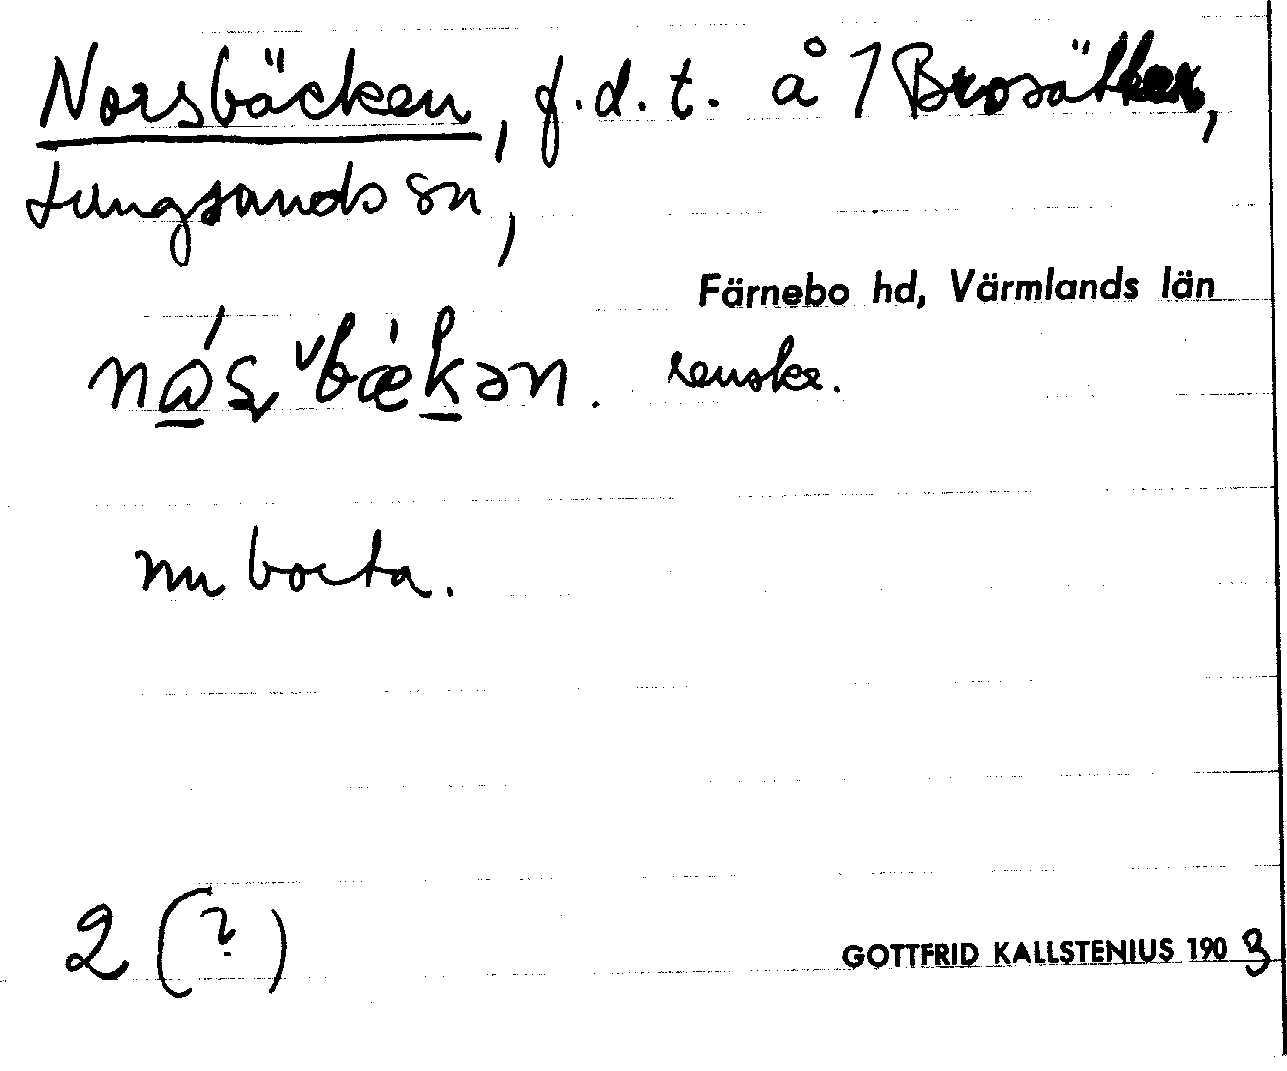 Norsbäcken, f.d. t. å 1 Brosätter,
Lungsands sn,
Färnebo hd, Värmlands län
nu borta.
2 (?)
GOTTFRID KALLSTENIUS 1903